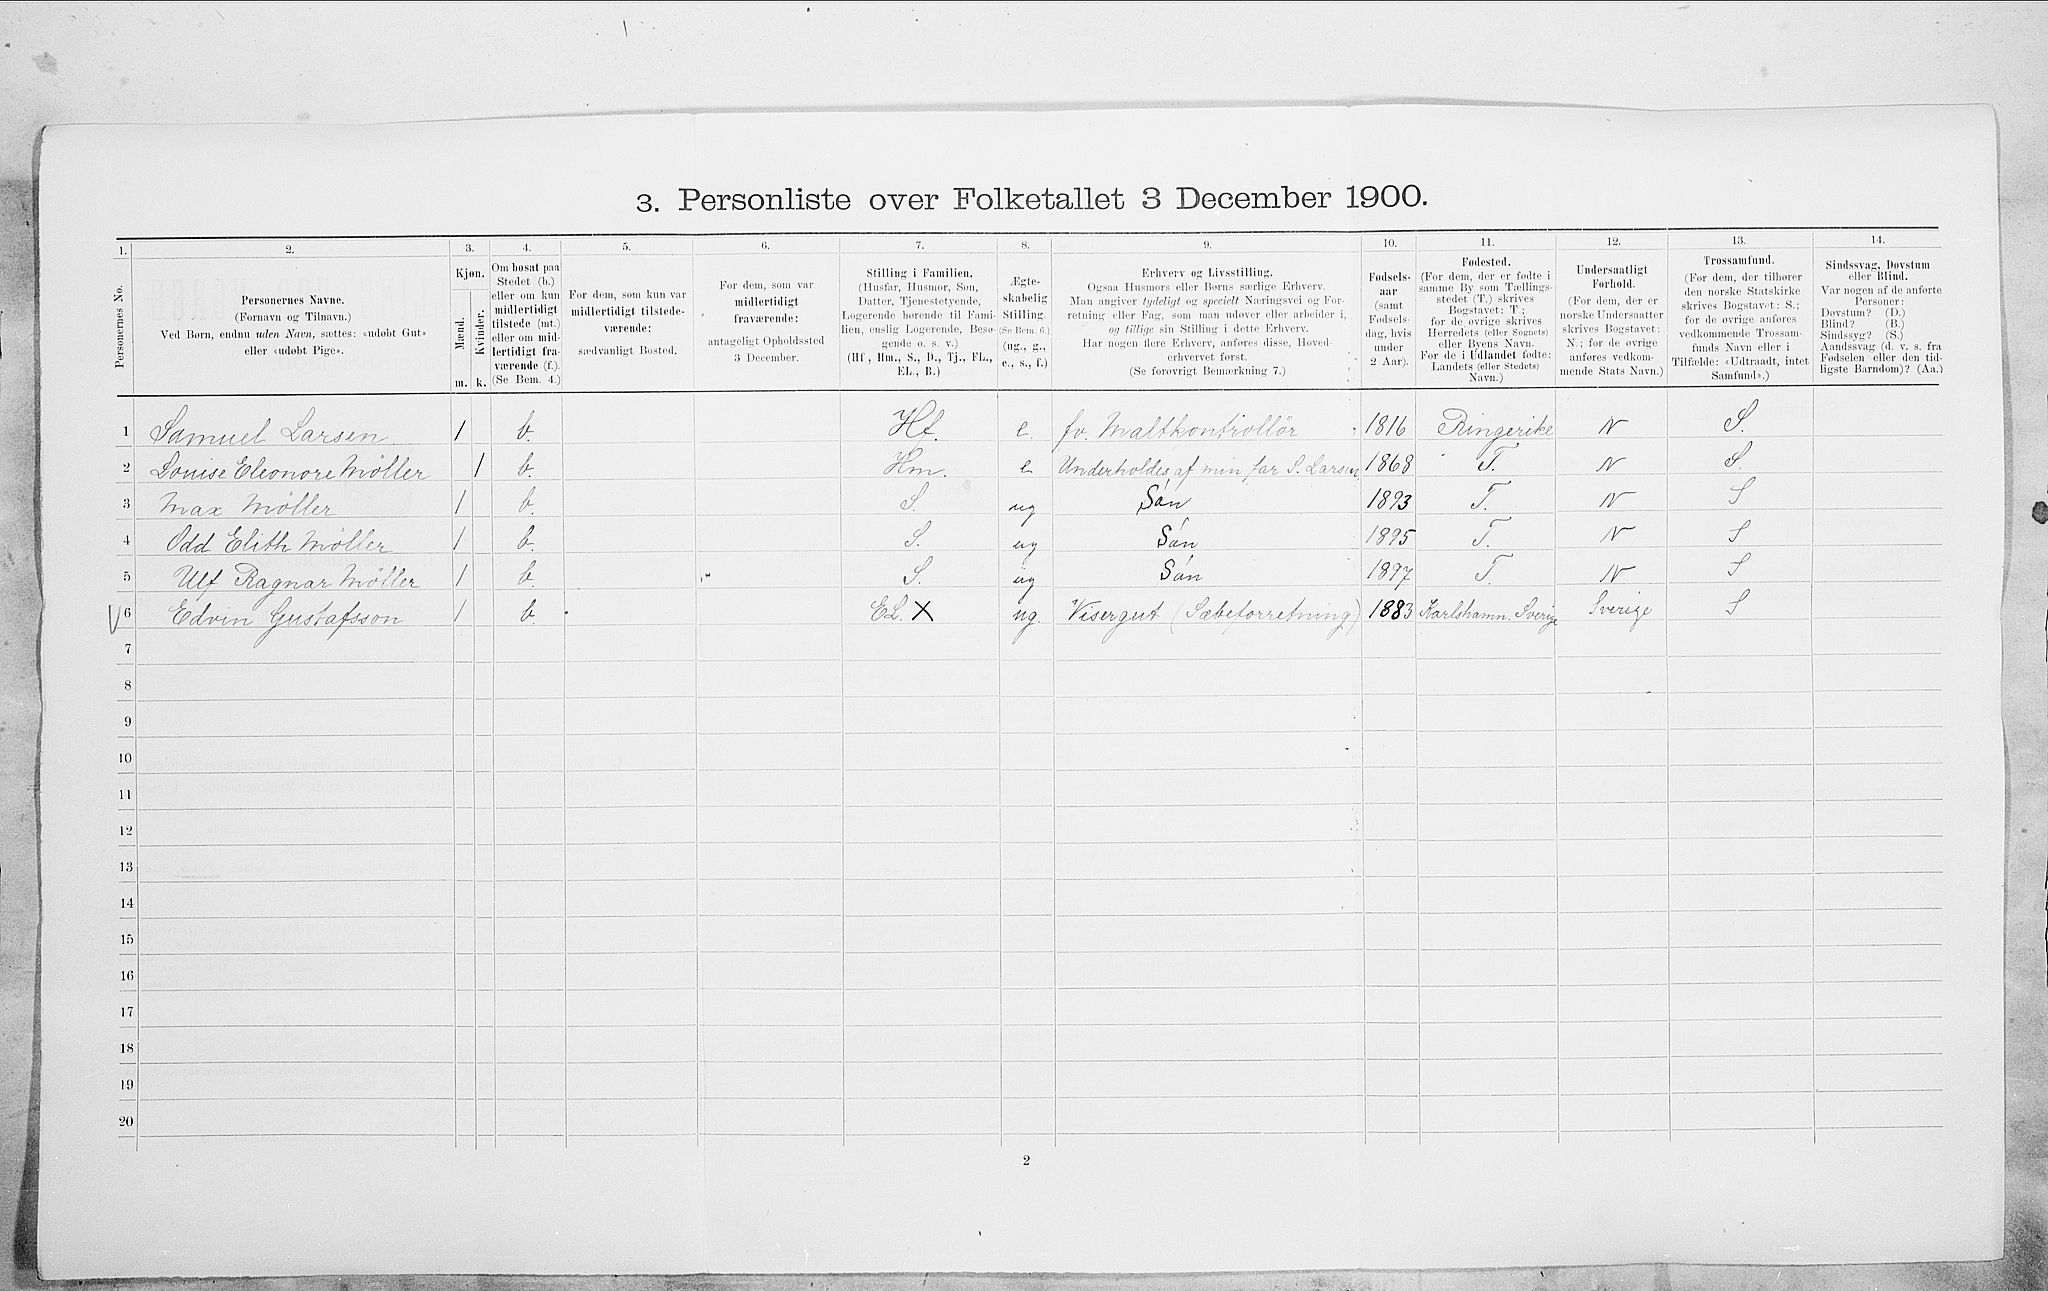 3. Personliste over Folketallet 3 December 1900.
1. 2. 3. 4. 5. 6. 7. 8. 9. 10. 11. 12. 13. 14.
Personernes No.
Personernes Navne.
(Fornavn og Tilnavn.)
Ved Børn, endnu uden Navn, sættes: «udøbt Gut»
eller «udøbt Pige».
Kjøn.
Mænd. Kvinder.
m. k.
Om bosat paa
Stedet (b.)
eller om kun
midlertidigt
tilstede (mt.)
eller om mid-
lertidigt fra-
værende (f.)
(Se Bem. 4.)
For dem, som kun var
midlertidigt tilstede-
værende:
sædvanligt Bosted.
For dem, som var
midlertidigt
fraværende:
antageligt Opholdssted
3 December.
Stilling i Familien.
(Husfar, Husmor, Søn,
Datter, Tjenestetyende,
Logerende hørende til Fami-
lien, enslig Logerende, Besø-
gende o. s. v.)
(Hf., Hm., S., D., Tj., FL.,
EL., B.)
Ægte-
skabelig
Stilling.
(Se Bem. 6.)
(ug., g.,
e., s., f.)
Erhverv og Livsstilling.
Ogsaa Husmors eller Børns særlige Erhverv.
Man angiver tydeligt og specielt Næringsvei og For-
retning eller Fag, som man udøver eller arbeider i,
og tillige sin Stilling i dette Erhverv.
Har nogen flere Erhverv, anføres disse, Hoved-
erhvervet først.
(Se forøvrigt Bemærkning 7.)
Fødsels-
aar
(samt
Fødsels-
dag, hvis
under
2 Aar).
Fødested.
(For dem, der er fødte i
samme By som Tællings-
stedet (T.) skrives
Bogstavet: T.;
for de øvrige skrives
Herredets (eller Sognets)
eller Byens Navn.
For de i Udlandet fødte:
Landets (eller Stedets)
Navn.)
Undersaatligt
Forhold.
(For dem, der er
norske Undersaatter
skrives Bogstavet:
N.; for de øvrige
anføres vedkom-
mende Stats Navn.)
Trossamfund.
(For dem, der tilhører
den norske Statskirke
skrives Bogstavet: S.;
for de øvrige anføres
vedkommende Trossam-
funds Navn eller i
Tilfælde: «Udtraadt, intet
Samfund».)
Sindssvag, Døvstum
eller Blind.
Var nogen af de anførte
Personer:
Døvstum? (D.)
Blind? (B.)
Sindssyg? (S.)
Aandssvag (d. v. s. fra
Fødselen eller den tid-
ligste Barndom)? (Aa.)
1 Samuel Larsen 1 b. Hf. e. fv. Maltkontrollør 1816 Ringerike N S.
2 Louise Eleonore Møller 1 b. Hm. e Underholdes af min far S. Larsen 1868 T. N S.
3 Max Møller 1 b. S. ug Søn 1893 T. N S
4 Odd Elith Møller 1 b. S. ug Søn 1895 T. N S
5 Ulf Ragnar Møller 1 b. S. ug Søn 1897 T. N S
V 6 Edvin Gustafsson 1 b. EL. X ug. Visergut (Sæbeforretning) 1883 Karlshamn. Sverige Sverige S
7
8
9
10
11
12
13
14
15
16
17
18
19
20
2